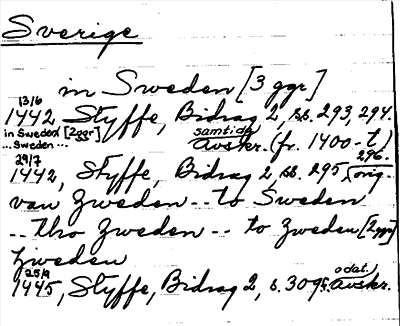 Sverige
in Sweden [3 ggr]
13/6
1442 Styffe, Bidrag 2, ss. 293, 294.
in Sweden [2ggr] samtida
... Sweden ... Avskr. (fr. 1400-t)
29/7 296.
1442, Styffe, Bidrag 2, ss. 295, orig.
van Zweden -- to Sweden
-- tho Zweden -- to Zweden [2ggr]
Zweden
25/9 odat.
1445, Styffe, Bidrag 2, s. 309, avskr.